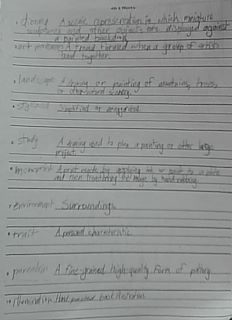 • diorama A scenic representation in which miniature
sculptures and other objects are displayed against
a painted backdrop.
art movement A trend formed when a group of artists
band together.
• landscape A drawing or painting of mountains, trees,
or other natural scenery.
• stylized Simplified or exaggerated.
• study A drawing used to plan a painting or other large
project.
• monoprint A print made by applying ink or paint to a plate
and then transferring the image by hand rubbing.
• environment Surroundings
• trait A personal characteristic
• porcelain A fine-grained high-quality form of pottery.
• illumination Hand painted book illustration